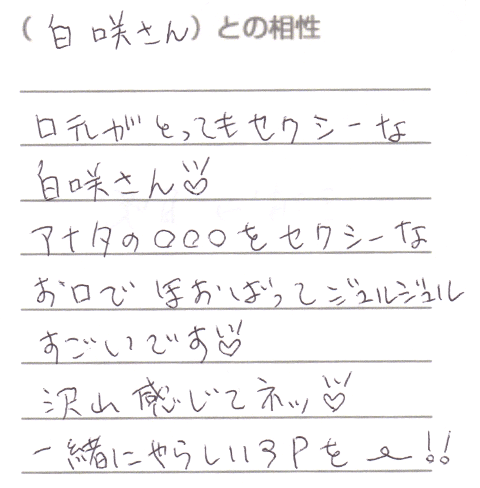 (白咲さん)との相性
口元がとってもセクシーな
白咲さん♡
アナタの○○○をセクシーな
お口でほおばってジュルジュル
すごいです♡
沢山感じてネッ♡
一緒にやらしい3Pを〜!!